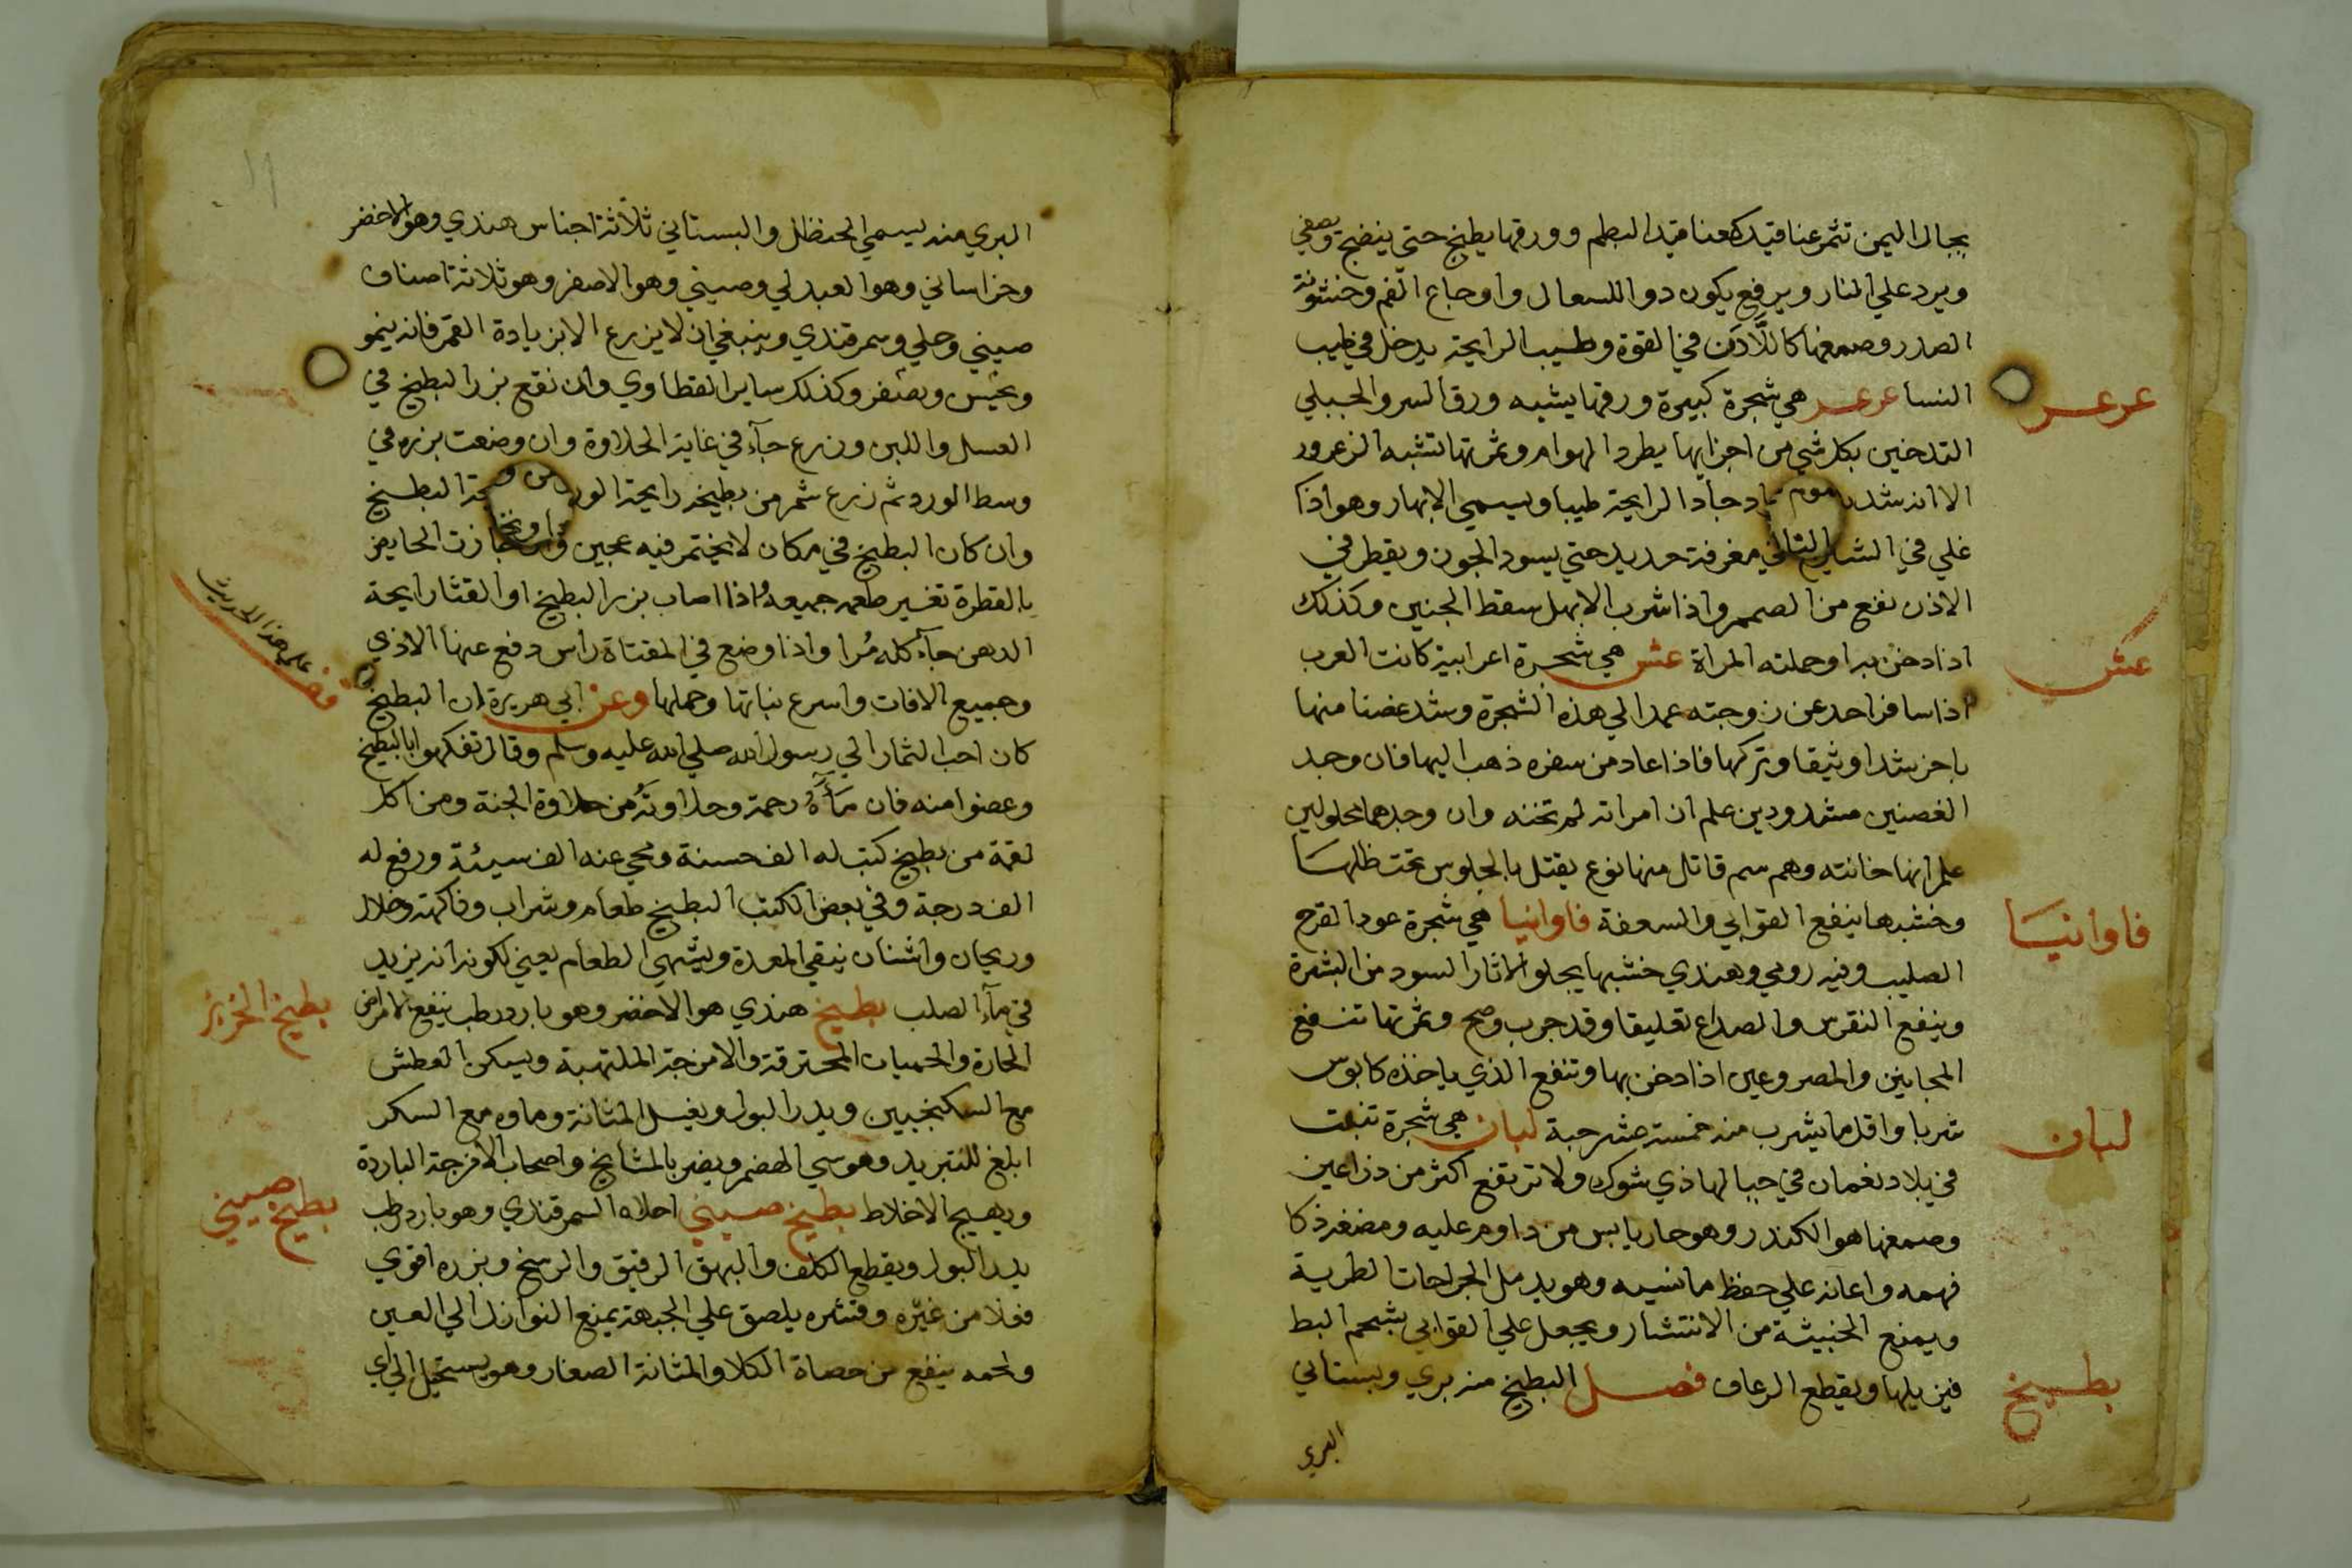 بجبال اليمن تثمر عناقيد كعناقيد البطم وورقها يطبخ حتي ينضج ويصفي
ويرد علي النار ويرفع يكون دوا للسعال واوجاع الفم وخشونة
الصدر وصمغها كاللَّادَن في القوة وطيب الرايحة يدخل في طيب
عرعر
النسا عرعر هي شجرة كبيرة ورقها يشبه ورق السرو الجبلي
التدخين بكل شي من اجزايها يطرد الهوام وثمرتها تشبه الزعرور
الا انه اشد حاد الرايحة طيبا ويسمي الابهار وهو اذا
غلي في مغرفة حديد حتي يسود الجوز ويقطر في
الاذن نفع من الصمم واذا شرب الابهل سقط الجنين وكذلك
عش
اذا دخن به او حملته المراة عش هي شجرة اعرابية كانت العرب
اذا سافر احد عن زوجته عمد الي هذه الشجرة وشد غصنا منها
باخر شدا وثيقا وتركها فاذا عاد من سفره ذهب اليها فان وجد
الغصنين مشدودين علم ان امراته لم تخنه وان وجدهما محلولين
علم انها خانته وهم سم قاتل منها نوع يقتل بالجلوس تحت ظلها
فاوانيا
وخشبها ينفع القوابي والسعفة فاوانيا هي شجرة عود القرح
الصليب وفيه رومي وهندي خشبها يجلو الاثار السود من البشرة
وينفع النقرس والصداع تعليقا وقد جرب وصح وثمرتها تنفع
المجانين والمصروعين اذا دخن بها وتنفع الذي ياخذه كابوس
لبان
شربا واقل ما يشرب منه خمسة عشر حبة لبان هي شجرة تنبت
في بلاد نعمان في جبالها ذي شوك ولا ترتفع اكثر من ذراعين
وصمغها هو الكندر وهو حار يابس من داوم عليه ومضغه ذكا
فهمه واعانه علي حفظ ما نسيه وهو يدمل الجراحات الطرية
ويمنع الخبيثة من الانتشار ويجعل علي القوابي بشحم البط
بطيخ
فيزيلها ويقطع الرعاف فصل البطيخ منه بري وبستاني
البري
البري منه يسمي الحنظل والبستاني ثلاثة اجناس هندي وهو الاخضر
وخراساني وهو العبدلي وصيني وهو الاصفر وهو ثلاثة اصناف
صيني وحلي وسمرقندي وينبغي ان لا يزرع الا بزيادة القمر فانه ينمو
ويصفر وكذلك ساير وان نقع بزر البطيخ في
العسل واللبن وزرع جآء في غاية الحلاوة وان وضعت بزره في
وسط الورد ثم زرع شم من بطيخه رايحة الورد البطيخ
وان كان البطيخ في مكان لا يختمر فيه عجين جازت الحايض
بالقطرة تغير طعم جميعه واذا اصاب بزر البطيخ او القثا رايحة
الدهن جآء كله مُرا واذا وضع في المقتاة راس دفع عنها الاذي
قف علي هذا الحديث
وجميع الافات واسرع نباتها وحملها وعن ابي هريرة ان البطيخ
كان احب الثمار الي رسول الله صلي الله عليه وسلم وقال تفكهوا بالبطيخ
وعضوا منه فان مَآءَهُ رحمة وحلاوتَهُ من حلاوة الجنة ومن اكل
لقمة من بطيخ كتب له الف حسنة ومحي عنه الف سيئة ورفع له
الف درجة وفي بعض الكتب البطيخ طعام وشراب وفاكهة وخلال
وريحان واشنان ينقي المعدة ويشهي الطعام يعني لكونه انه يزيد
بطيخ
في مآء الصلب بطيخ هندي هو الاخضر وهو بارد رطب ينفع الامراض
الحارة والحميات المحترقة والامزجة الملتهبة ويسكن العطش
مع السكنجبين ويدر البول ويغسل المثانة وماوه مع السكر
ابلغ للتبريد وهو سي الهضم ويضر بالمشايخ واصحاب الامزجة الباردة
بطيخ صيني
ويهيج الاخلاط بطيخ صيني احلاه السمرقندي وهو بارد رطب
يدر البول ويقطع الكلف والبهق الرقيق والوسخ وبزره اقوي
فعلا من غيره وقشره يلصق علي الجبهة يمنع النوازل الي العين
ولحمه ينفع من حصاة الكلا والمثانة الصغار وهو يستحيل الي اي